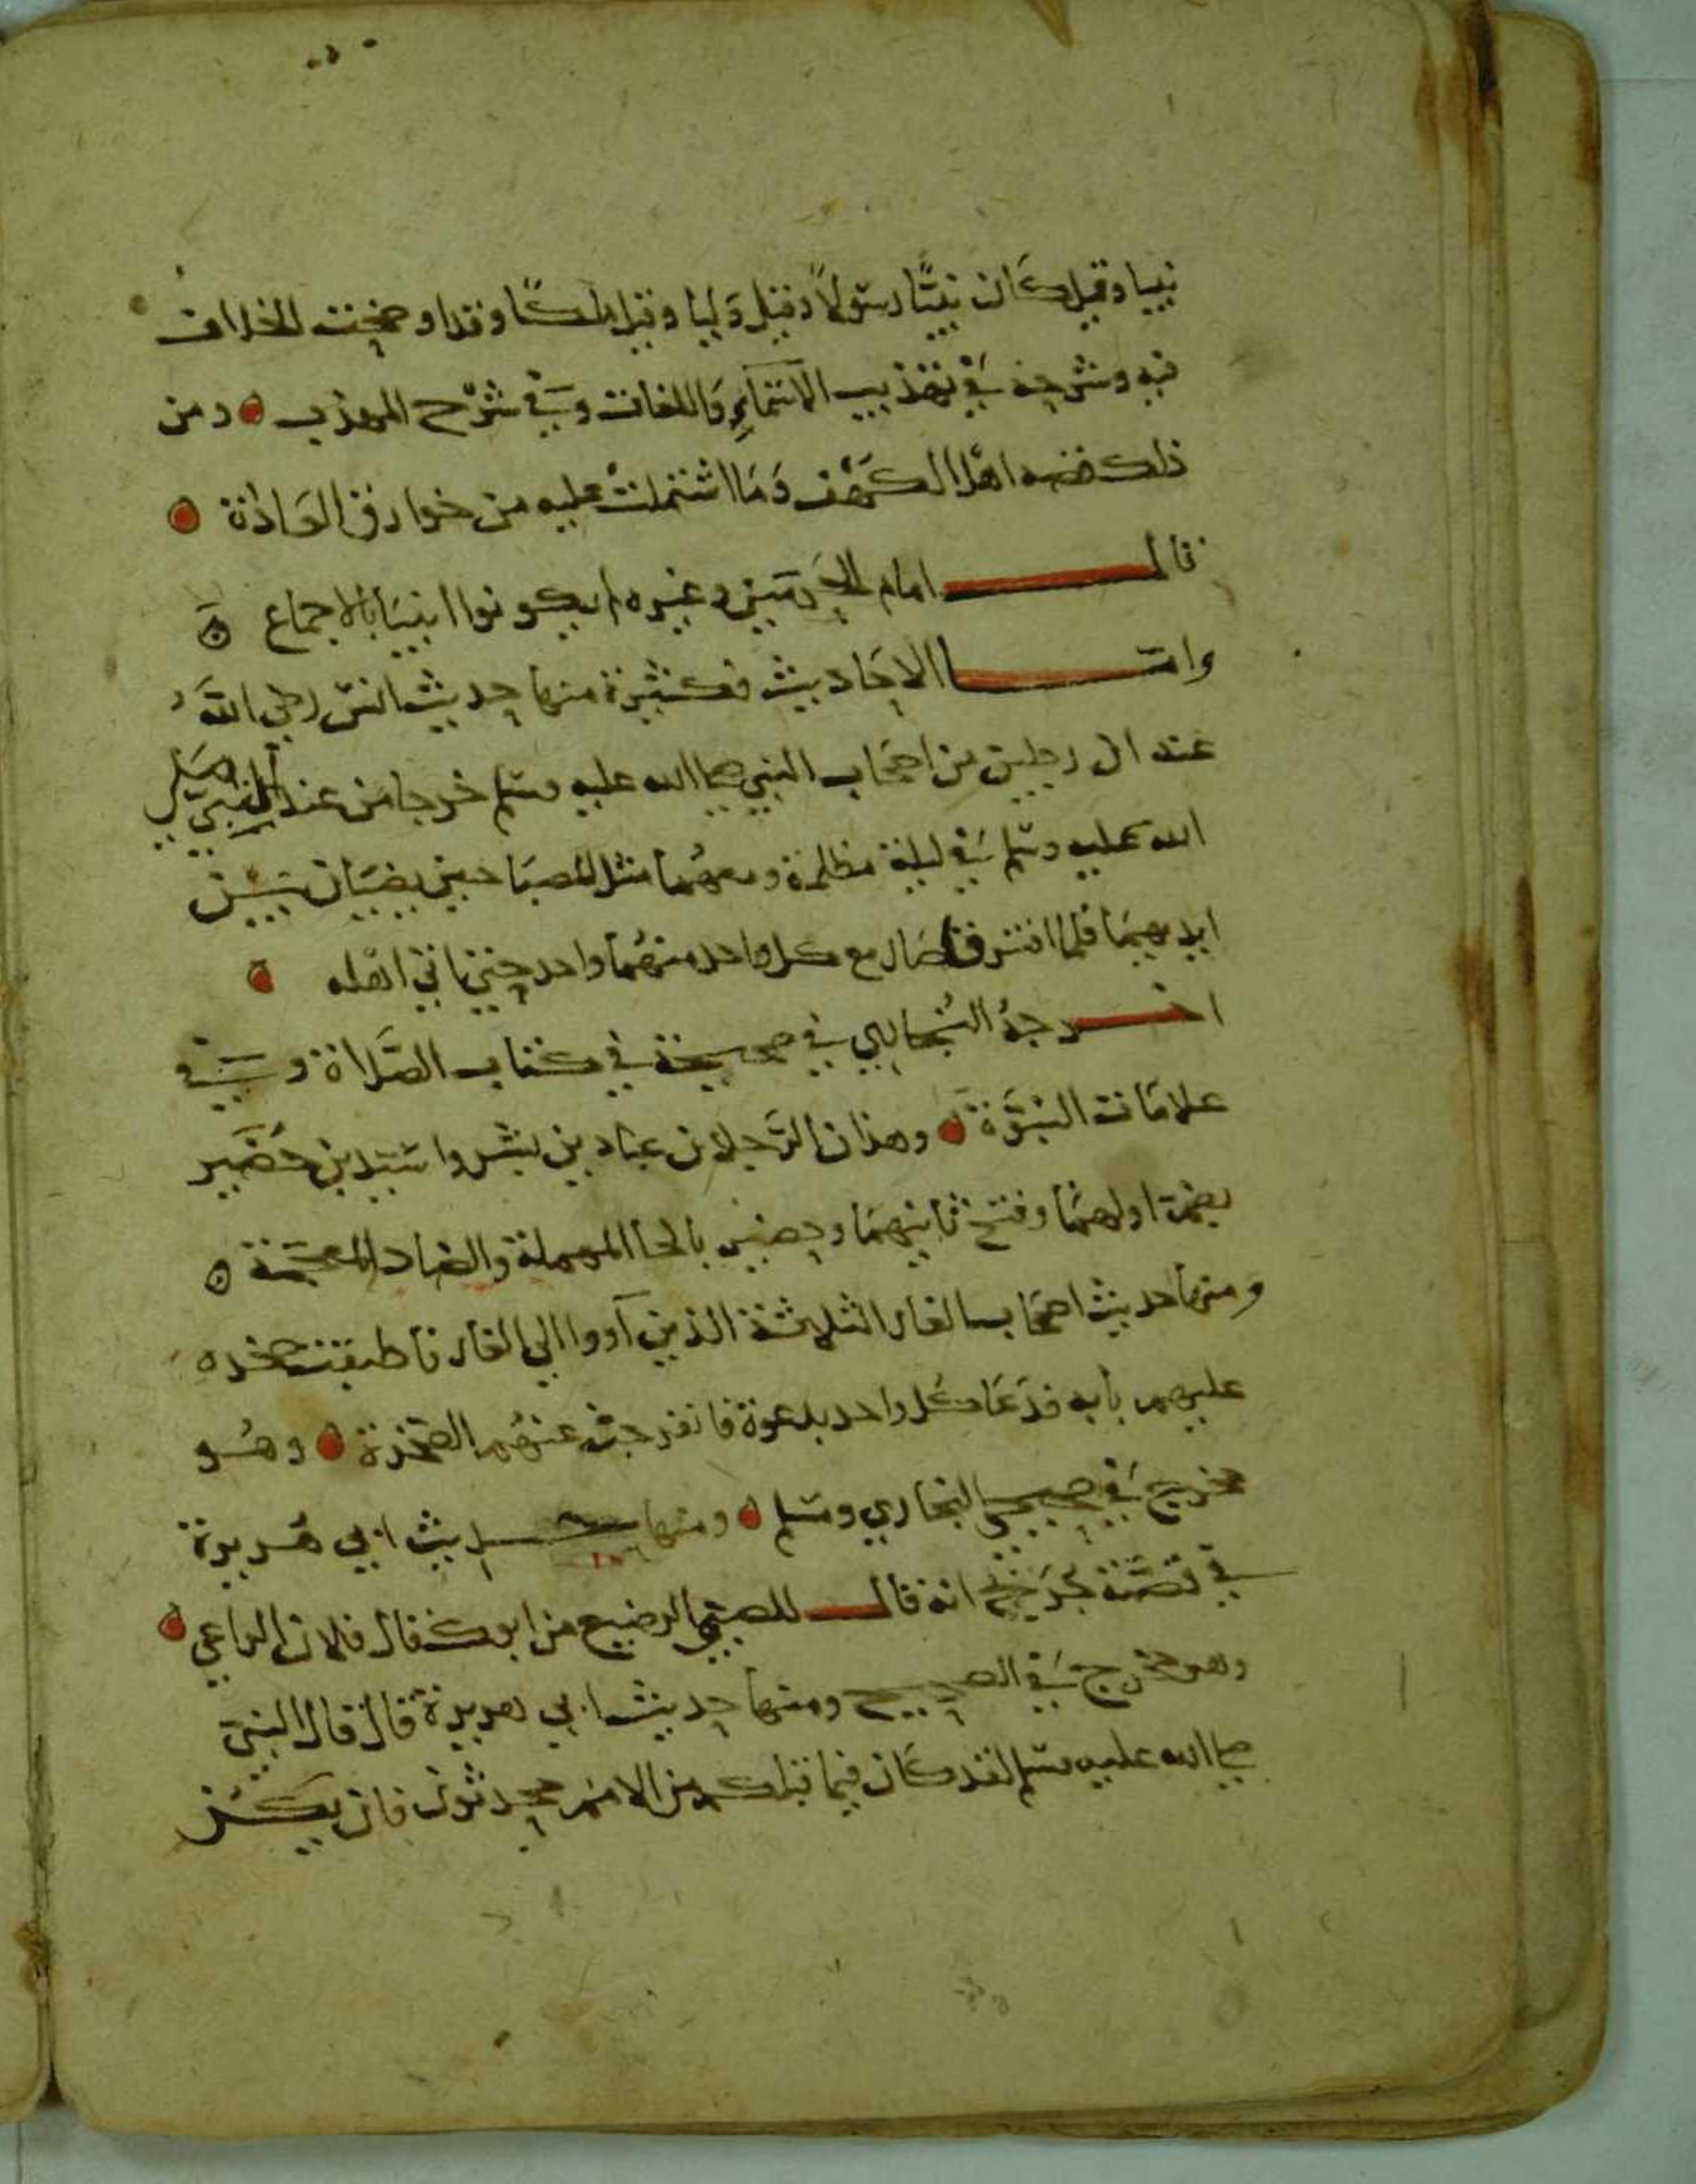 نبيا وقيل كان نبيّا رسولاً وقيل وَليا وقيل ملكًا وقد اوضحت الخلاف
فيه وشرحته في تهذيب الاسَمآءِ وَاللغات وفي شرْح المهذب ومن
ذلك قصه اهل الكَهْف وَمَا اشتملتْ عليه من خوارق العَادَة
قال امام الحَرمَين وغيره لم يكونوا انبيَا بالاجماع
وامّا الاحَاديث فكثيرة منها حديث انسْ رضي اللهَ
عنه ان رجلين من اصحَاب النبي صلى الله عليه وسلم خرجا من عند النبي صلى
الله عليه وسلم في ليلة مظلمة ومعهُما مثل المصبَاحين يضيَان بَيْن
ايديهمَا فلما افترقا صَار مع كل واحد منهُما واحد حتى اتى اهله
اخرجهُ البُخاري في صحيحة في كتاب الصَّلاة وَفي
علامَات النبوَّة وهذان الرَّجلان عباد بن بشر واسَيد بن حُضَير
بضمة اولهمَا وفتح ثانيهمَا وحضير بالحا المهملة والضاد المعجَمة
ومنها حديث اصحَاب الغار الثلثة الذين آووا الي الغار فاطبقت صخره
عليهم بابه فدَعَا كل واحد بدعوة فانفرجتْ عنهُم الصَّخرة وهُو
مخرج في صحيحي البخاري ومسَلم ومنها حديث ابي هُريرة
في قصَّة جُرَيْج انهُ قال للصبي الرضيع من ابوك قال فلان الراعي
وهو مخرج في الصحيح ومنها حديث ابي هريرة قال قال النبيّ
صلى الله عليه وسلم لقد كَان فيما قبلكم من الامَم محدثون فان يَكُنْ